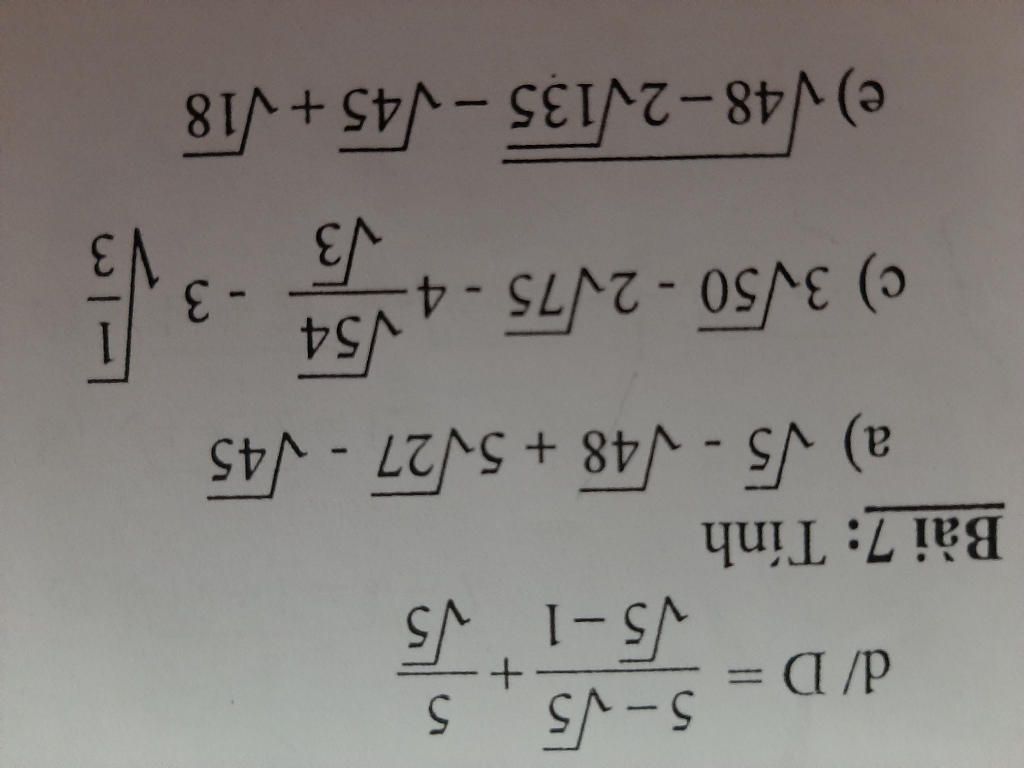 d/ D = (5 − √5)/(√5 − 1) + 5/√5
Bài 7: Tính
a) √5 - √48 + 5√27 - √45
c) 3√50 - 2√75 - 4 √54/√3 - 3 √(1/3)
e) √(48 − 2√135) − √45 + √18